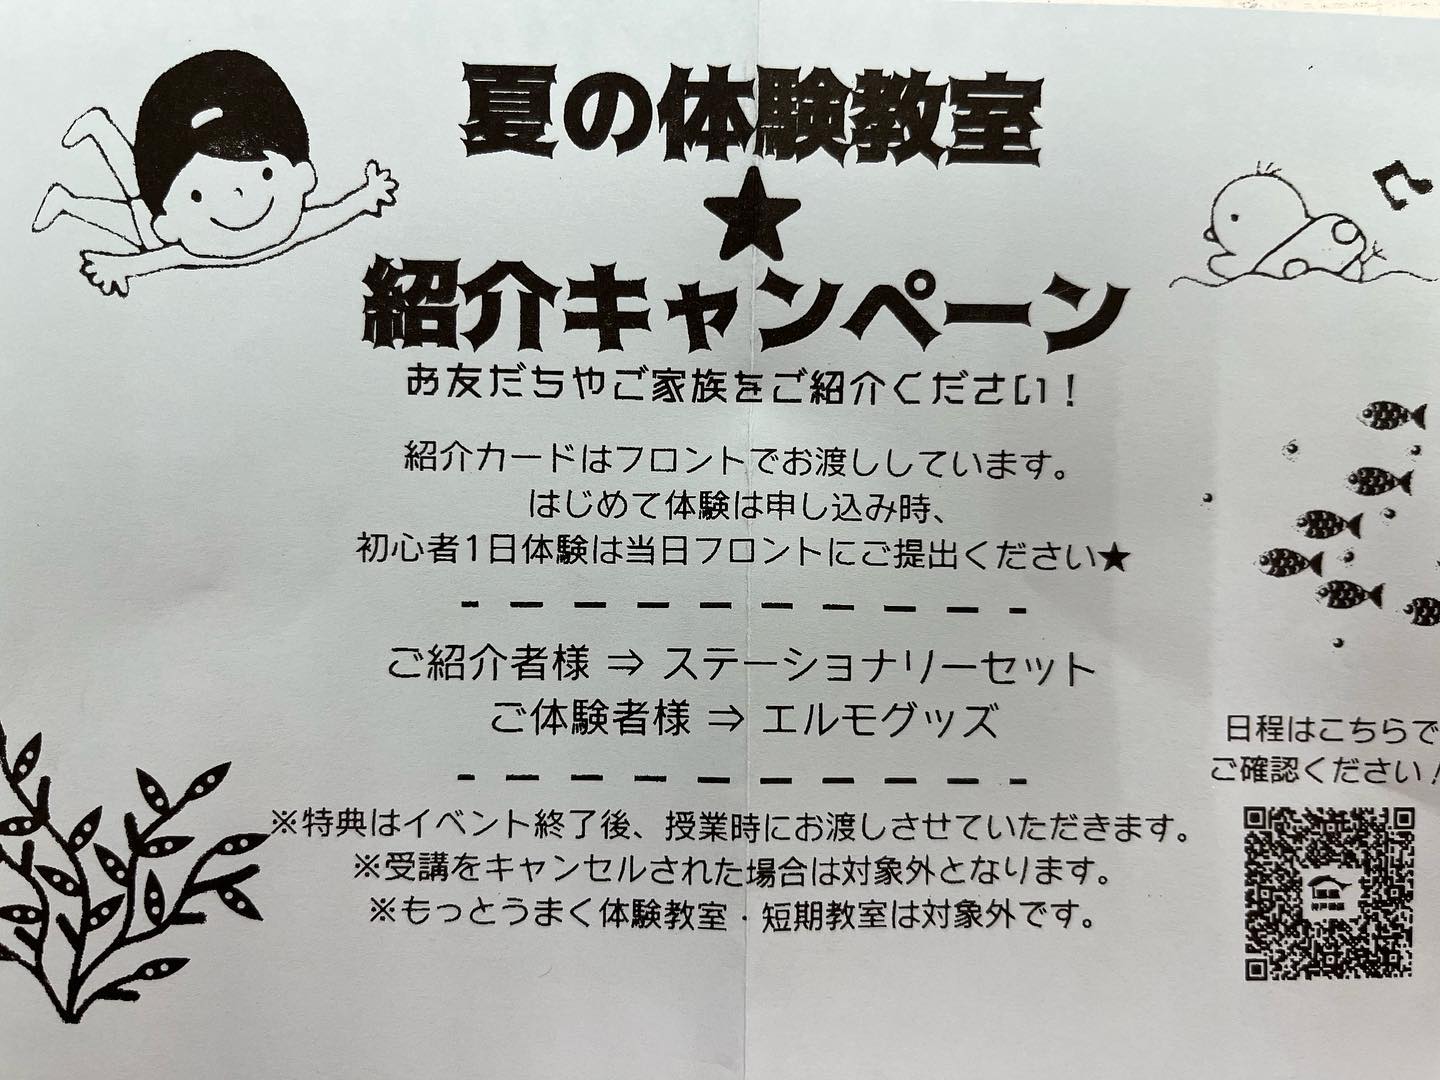 夏の体験教室
★
紹介キャンペーン
お友だちやご家族をご紹介ください！
紹介カードはフロントでお渡ししています。
はじめて体験は申し込み時、
初心者1日体験は当日フロントにご提出ください★
ご紹介者様 ⇒ ステーショナリーセット
ご体験者様 ⇒ エルモグッズ
※特典はイベント終了後、授業時にお渡しさせていただきます。
※受講をキャンセルされた場合は対象外となります。
※もっとうまく体験教室・短期教室は対象外です。
日程はこちらで
ご確認ください！